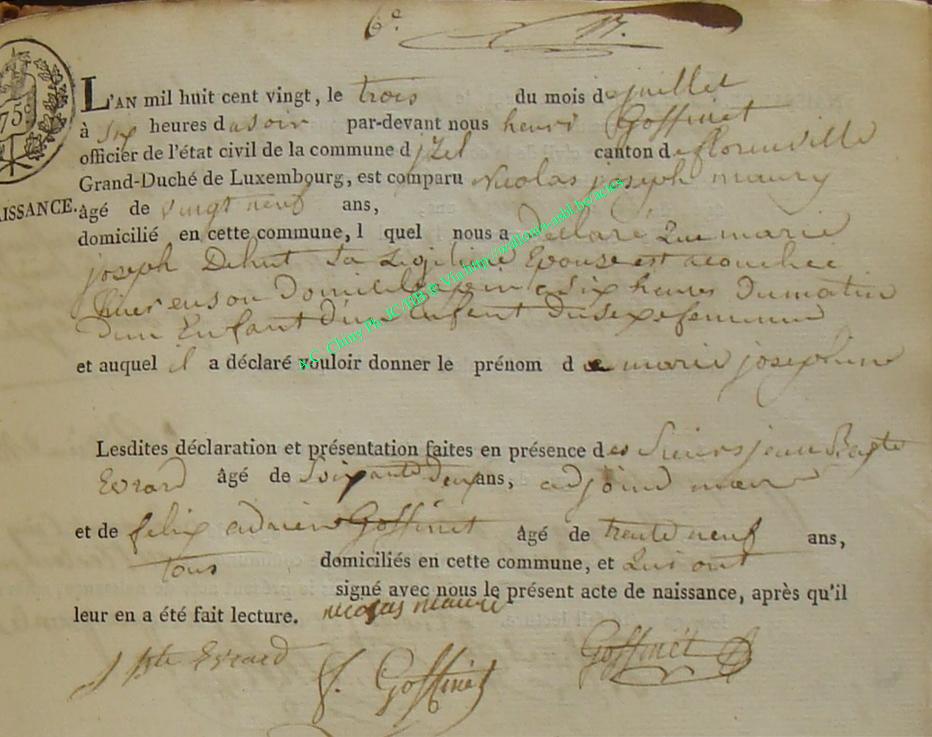 6e
75c
NAISSANCE.
L'AN mil huit cent vingt, le trois du mois de juillet
à six heures du soir par-devant nous henri Goffinet
officier de l'état civil de la commune d jzel canton de florenville
Grand-Duché de Luxembourg, est comparu Nicolas joseph maury
âgé de vingt neuf ans,
domicilié en cette commune, l quel nous a declaré que marie
joseph Dehut Sa Legitime Epouse est acouchée
hier en son Domicile a six heures Dumatin
Dun Enfant Dun Enfent Dusexe feminin
et auquel il a déclaré vouloir donner le prénom d e marie josephine
Lesdites déclaration et présentation faites en présence des Sieurs jean Bapte
Evrard âgé de Soixante Deux ans, adjoint
et de felix adrien Goffinet âgé de trente neuf ans,
tous domiciliés en cette commune, et Qui ont
signé avec nous le présent acte de naissance, après qu'il
leur en a été fait lecture. nicolas maury
J Bte Evrard f. Goffinet Goffinet